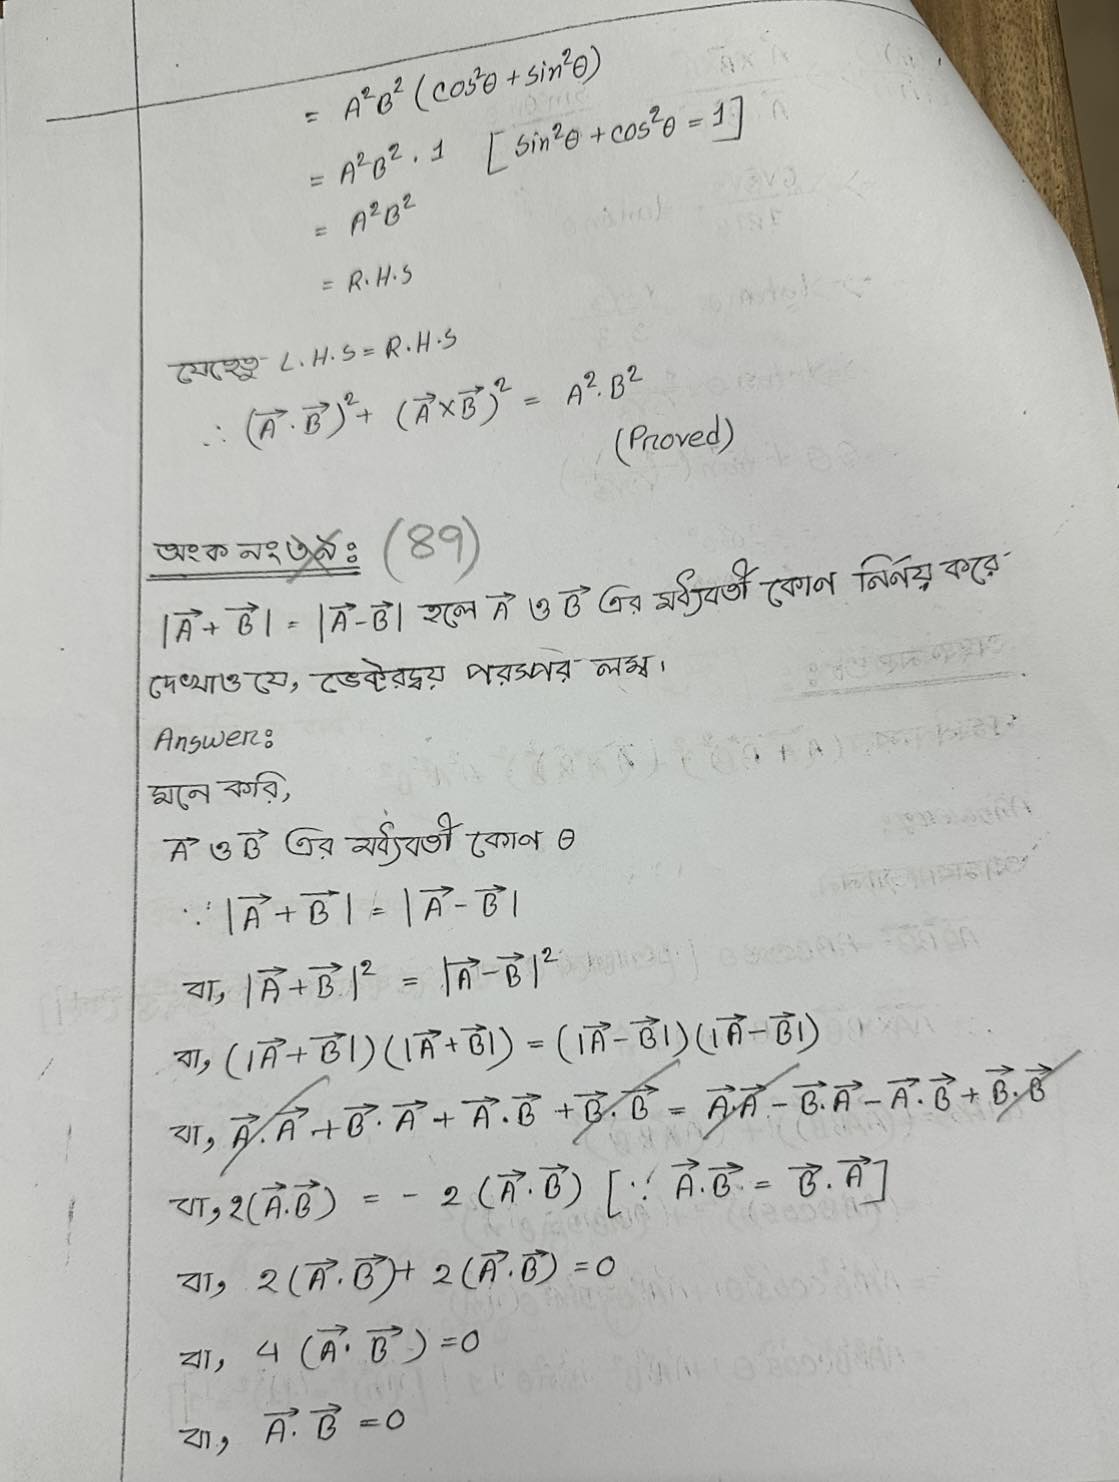 = A²B² (cos²θ + sin²θ)
= A²B² . 1 [sin²θ + cos²θ = 1]
= A²B²
= R.H.S
যেহেতু L.H.S = R.H.S
∴ (A⃗ . B⃗)² + (A⃗ × B⃗)² = A² . B²
(Proved)
অংক নং : (89)
|A⃗ + B⃗| = |A⃗ - B⃗| হলে A⃗ ও B⃗ এর মধ্যবর্তী কোন নির্নয় করে
দেখাও যে, ভেক্টরদ্বয় পরস্পর লম্ব।
Answer:
মনে করি,
A⃗ ও B⃗ এর মধ্যবর্তী কোণ θ
∵ |A⃗ + B⃗| = |A⃗ - B⃗|
বা, |A⃗ + B⃗|² = |A⃗ - B⃗|²
বা, (|A⃗ + B⃗|) (|A⃗ + B⃗|) = (|A⃗ - B⃗|) (|A⃗ - B⃗|)
বা, A⃗ . A⃗ + B⃗ . A⃗ + A⃗ . B⃗ + B⃗ . B⃗ = A⃗ . A⃗ - B⃗ . A⃗ - A⃗ . B⃗ + B⃗ . B⃗
বা, 2(A⃗ . B⃗) = - 2 (A⃗ . B⃗) [∵ A⃗ . B⃗ = B⃗ . A⃗]
বা, 2 (A⃗ . B⃗) + 2 (A⃗ . B⃗) = 0
বা, 4 (A⃗ . B⃗) = 0
বা, A⃗ . B⃗ = 0